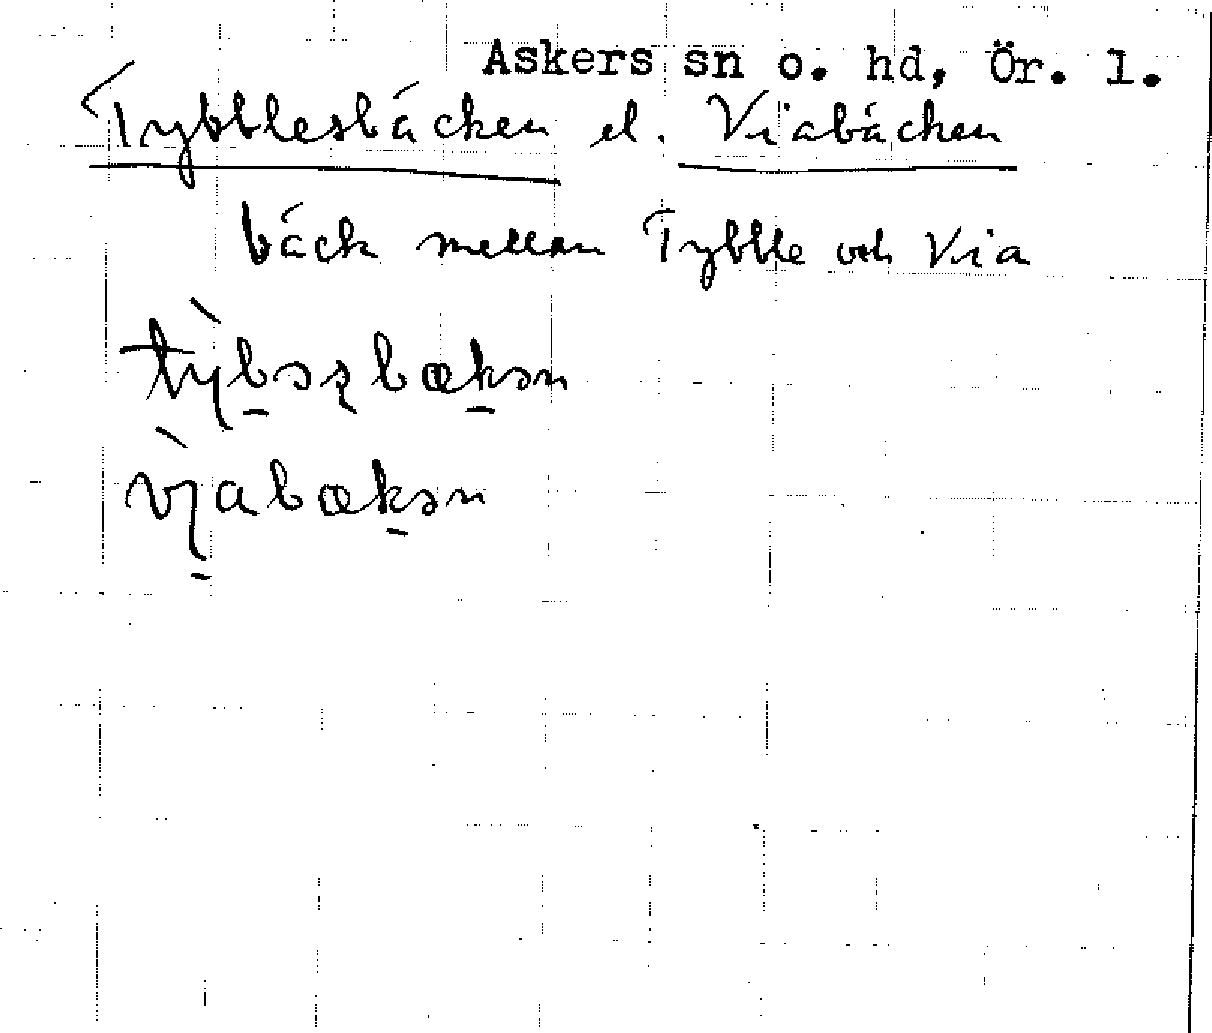 Askers sn o. hd, Ör. l.
Tybblesbäcken el. Viabäcken
bäck mellan Tybble och Via